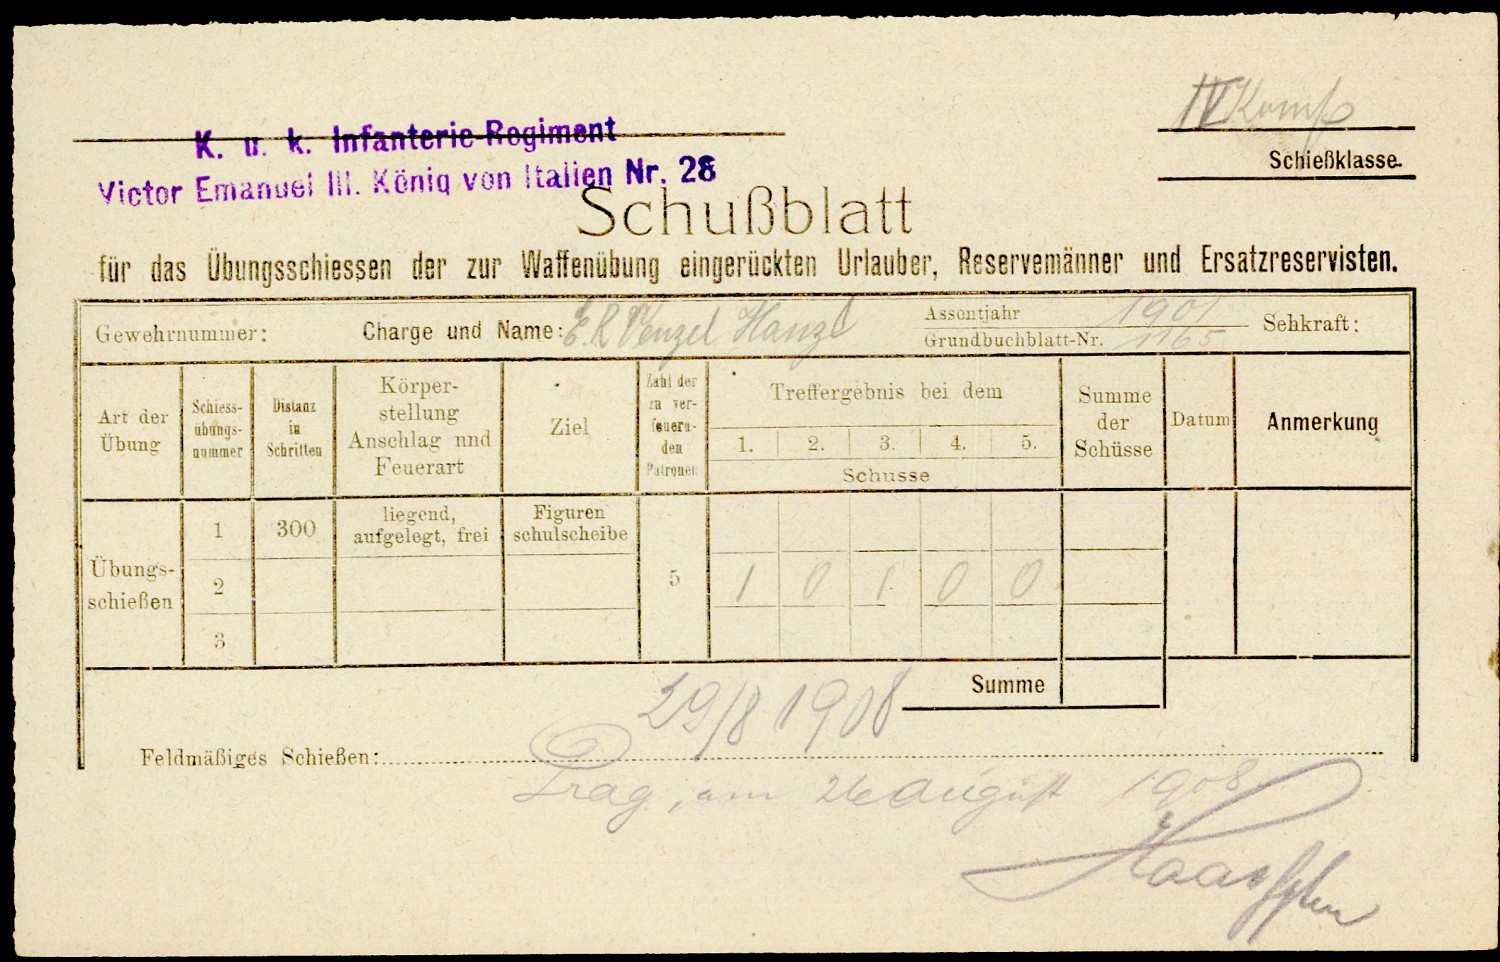 IV Komp
K. u. k. Infanterie-Regiment
Schießklasse.
Victor Emanuel III. König von Italien Nr. 28
Schußblatt
für das Übungsschiessen der zur Waffenübung eingerückten Urlauber, Reservemänner und Ersatzreservisten.
Gewehrnummer: Charge und Name: E.R. Wenzel Hanzl Assentjahr 1901 Sehkraft:
Grundbuchblatt-Nr. 1165
Art der Übung
Schiess-übungs-nummer
Distanz in Schritten
Körper-
stellung
Anschlag nnd
Feuerart
Ziel
Zahl der
zu ver-
feuern-
den
Patronen
Treffergebnis bei dem
1. 2. 3. 4. 5.
Schusse
Summe
der
Schüsse
Datum
Anmerkung
Übungs-
schießen
1 300 liegend, aufgelegt, frei Figuren schulscheibe
2 5 1 0 1 0 0
3
Summe
29/8 1908
Feldmäßiges Schießen:
Prag, am 26 august 1908